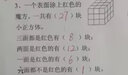 3、一个表面涂上红色的
魔方,一共有(27)块
小正方体。
三面都是红色的有(8)块;
两面是红色的有(12)块;
一面是红色的有(6)块;
六面都不是红色的有(1)块。